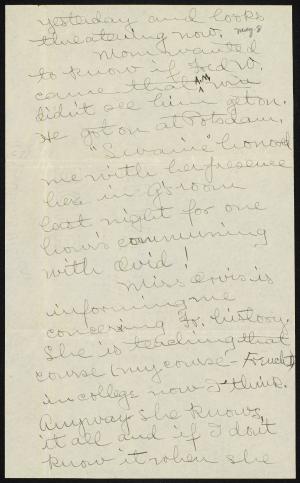 yesterday and looks
threatening now. May 8
Mom wanted
to know if Fred W.
came that AM win
didn't see him get on.
He got on at Potsdam.
"Swanie" honored
me with her presence
here in G's room
last night for one
hour's communing
with Ovid!
Miss Orvis is
informing me
concerning Fr. history.
She is teaching that
course (my course - French)
in college now I think.
Anyway she knows
it all and if I don't
know it when she